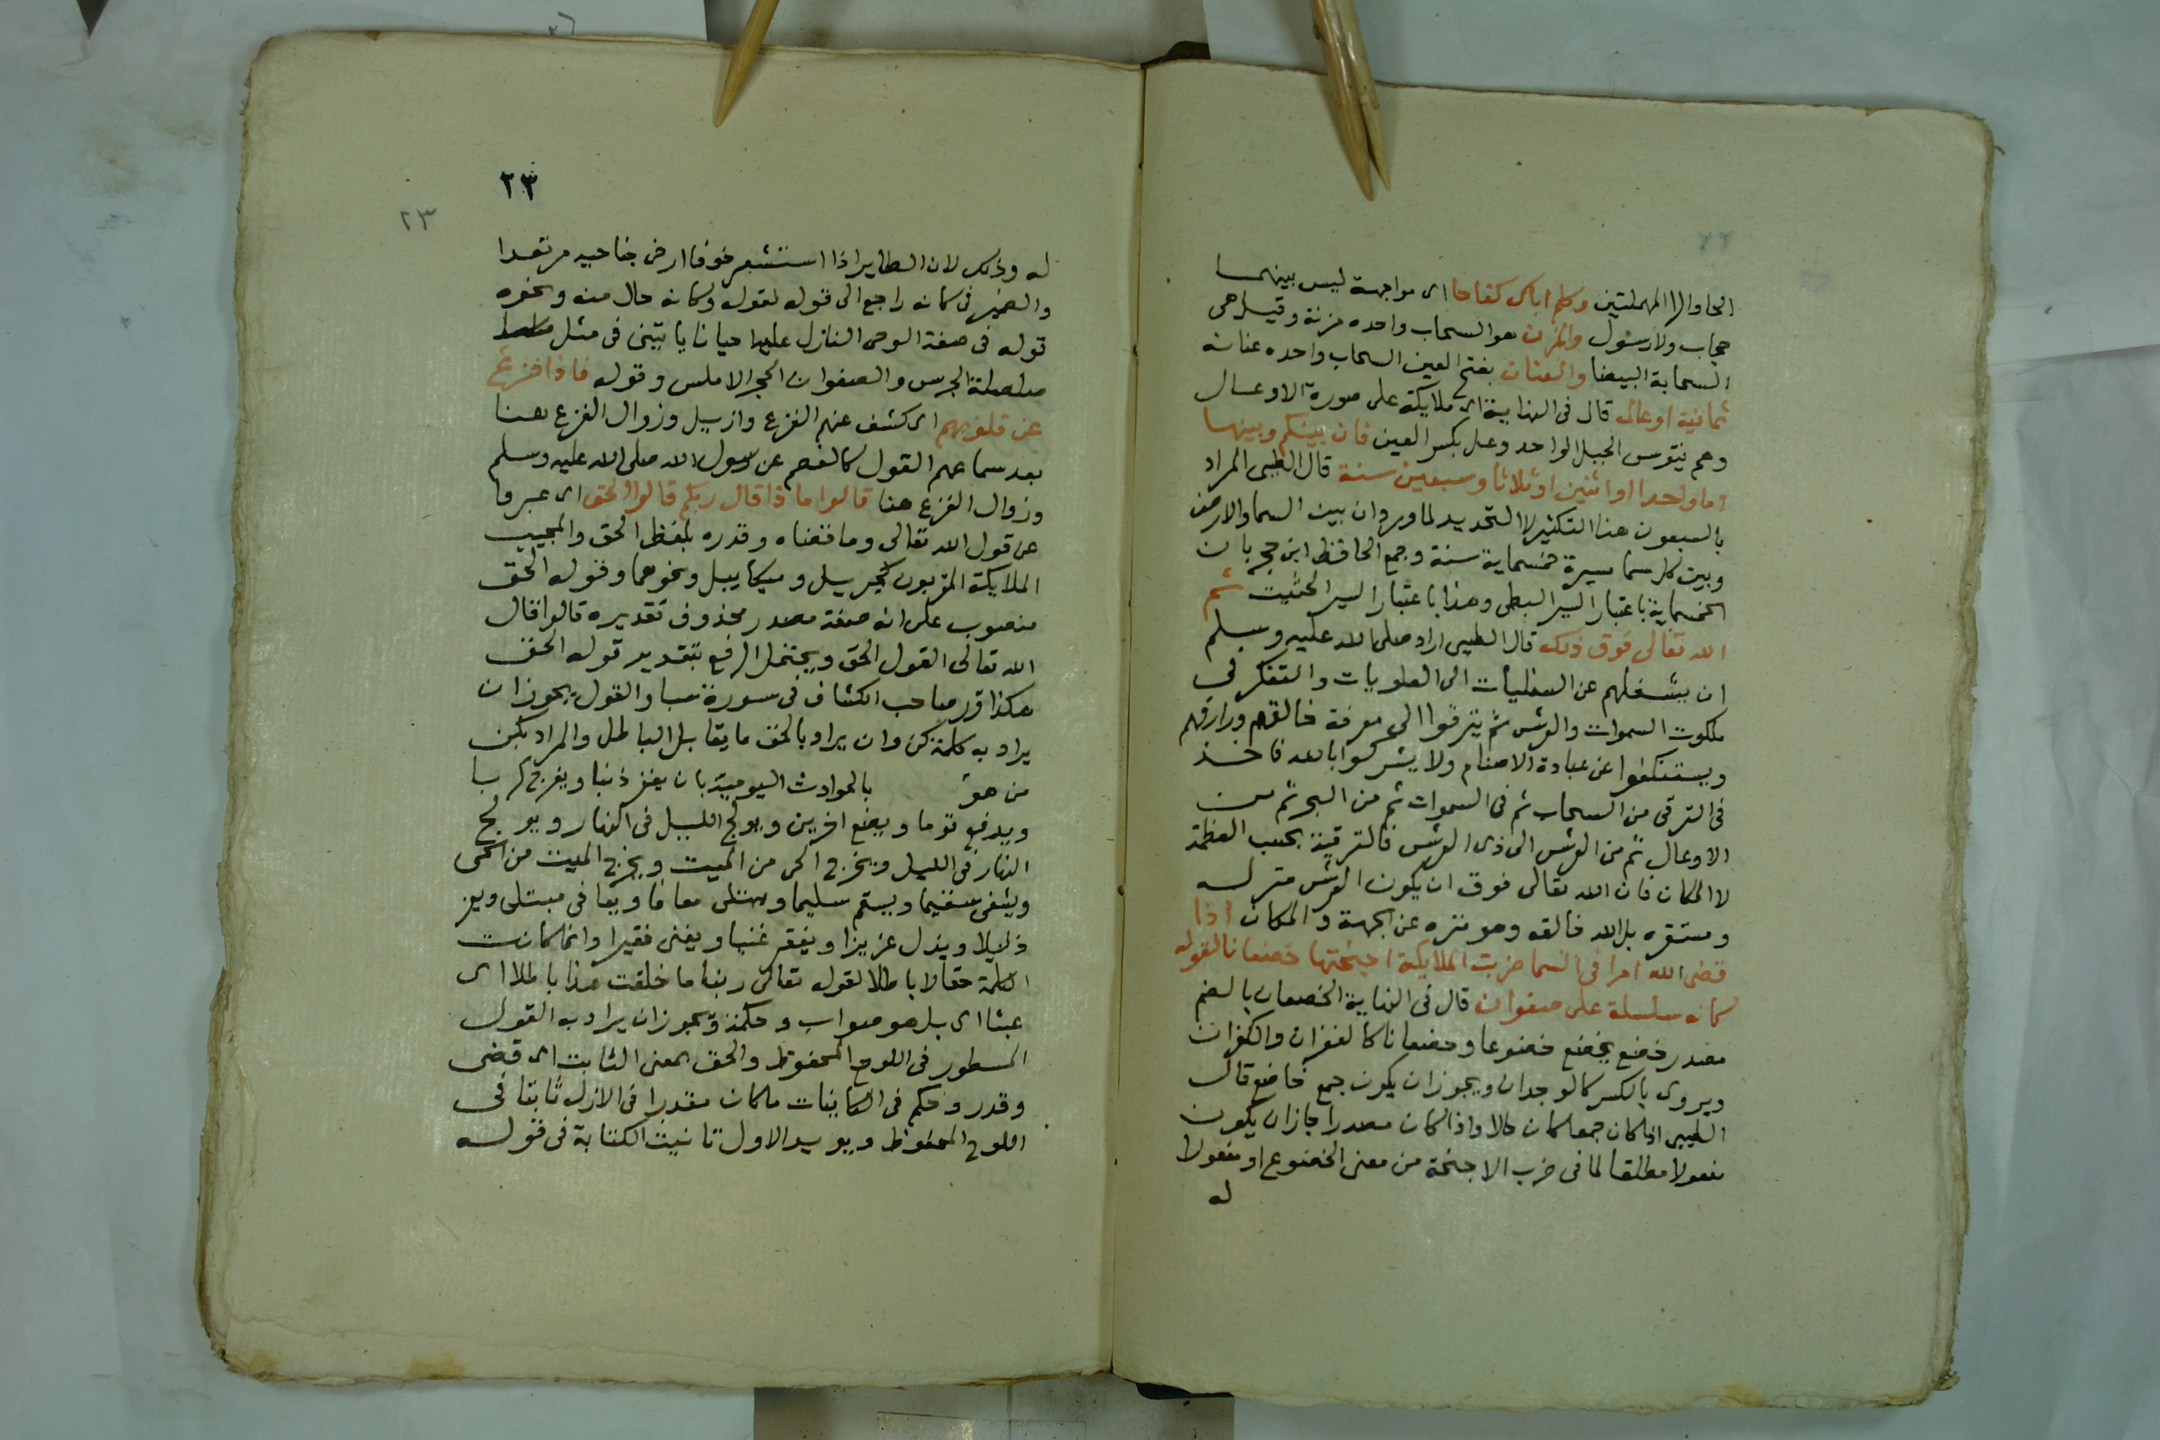 الحا والرا المهملتين وكلم اباك كفاحا اى مواجهة ليس بينهما
حجاب ولا رسول والمزن هو السحاب واحده مزنة وقيل هى
السحابة البيضا والعنان بفتح العين السحاب واحده عنانه
ثمانية اوعال قال فى النهاية اى ملايكة على صورة الاوعال
وهم تيوس الجبل الواحد وعل بكسر العين فان بينكم وبينها
اما واحدا او اثنين او ثلاثا وسبعين سنة قال الطيبى المراد
بالسبعون هنا التكثير لا التحديد لما ورد ان بين السما والارض
وبين كل سما مسيرة خمسماية سنة وجمع الحافظ ابن حجر بان
الخمسماية باعتبار السير البطى وهذا باعتبار السير الحثيث ثم
الله تعالى فوق ذلك قال الطيبى اراد صلى الله عليه وسلم
ان يشغلهم عن السفليات الى العلويات والتفكر فى
ملكوت السموات والعرش ثم يترقوا الى معرفة خالقهم ورازقهم
ويستنكفوا عن عبادة الاصنام ولا يشركوا بالله فاخذ
فى الترقى من السحاب ثم فى السموات ثم من البحر ثم من
الاوعال ثم من العرش الى ذى العرش فالترقية بحسب العظمة
لا المكان فان الله تعالى فوق ان يكون العرش منزله
ومستقره بل الله خالقه وهو منزه عن الجهة والمكان اذا
قضى الله امرا فى السما ضربت الملايكة اجنحتها خضعانا لقوله
كانه سلسلة على صفوان قال فى النهاية الخضعان بالضم
مصدر خضع يخضع خضوعا وخضعانا كالغفران والكفران
ويروى بالكسر كالوجدان ويجوز ان يكون جمع خاضع قال
الطيبى اذا كان جمعا كان حالا واذا كان مصدرا جاز ان يكون
مفعولا مطلقا لما فى ضرب الاجنحة من معنى الخضوع او مفعولا
له
٢٣
٢٣
له وذلك لان الطاير اذا استشعر خوفا ارخى جناحيه مرتعدا
والضمير فى كانه راجع الى قوله لقوله وكانه حال منه ونحوه
قوله فى صفة الوحى النازل عليه احيانا ياتينى فى مثل
صلصلة الجرس والصفوان الحجر الاملس وقوله فاذا فزع
عن قلوبهم اى كشف عنهم الفزع وازيل وزوال الفزع هنا
بعد سماعهم القول كالفصم عن رسول الله صلى الله عليه وسلم
وزوال الفزع هنا قالوا ماذا قال ربكم قالوا الحق اى عبروا
عن قول الله تعالى وما قضاه وقدره بلفظ الحق والمجيب
الملايكة المقربون كجبريل وميكاييل ونحوهما وقوله الحق
منصوب على انه صفة مصدر محذوف تقديره قالوا قال
الله تعالى القول الحق ويحتمل الرفع بتقدير قوله الحق
هكذا قرر صاحب الكشاف فى سورة سبا والقول يجوز ان
يراد به كلمة كن وان يراد بالحق ما يقابل الباطل والمراد بكن
من هو بالحوادث اليومية بان يغفر ذنبا ويفرج كربا
ويرفع قوما ويضع اخرين ويولج الليل فى النهار ويولج
النهار فى الليل ويخرج الحى من الميت ويخرج الميت من الحى
ويشفى سقيما ويسقم سليما ويبتلى معافا ويعافى مبتلى ويعز
ذليلا ويذل عزيزا ويفقر غنيا ويغنى فقيرا وانما كانت
الكلمة حقا لا باطلا لقوله تعالى ربنا ما خلقت هذا باطلا اى
عبثا اى بل هو صواب وحكمة ويجوز ان يراد به القول
المسطور فى اللوح المحفوظ والحق بمعنى الثابت اى قضى
وقدر وحكم فى الكاينات ما كان مقدرا فى الازل ثابتا فى
اللوح المحفوظ ويويد الاول تانيث الكناية فى قوله